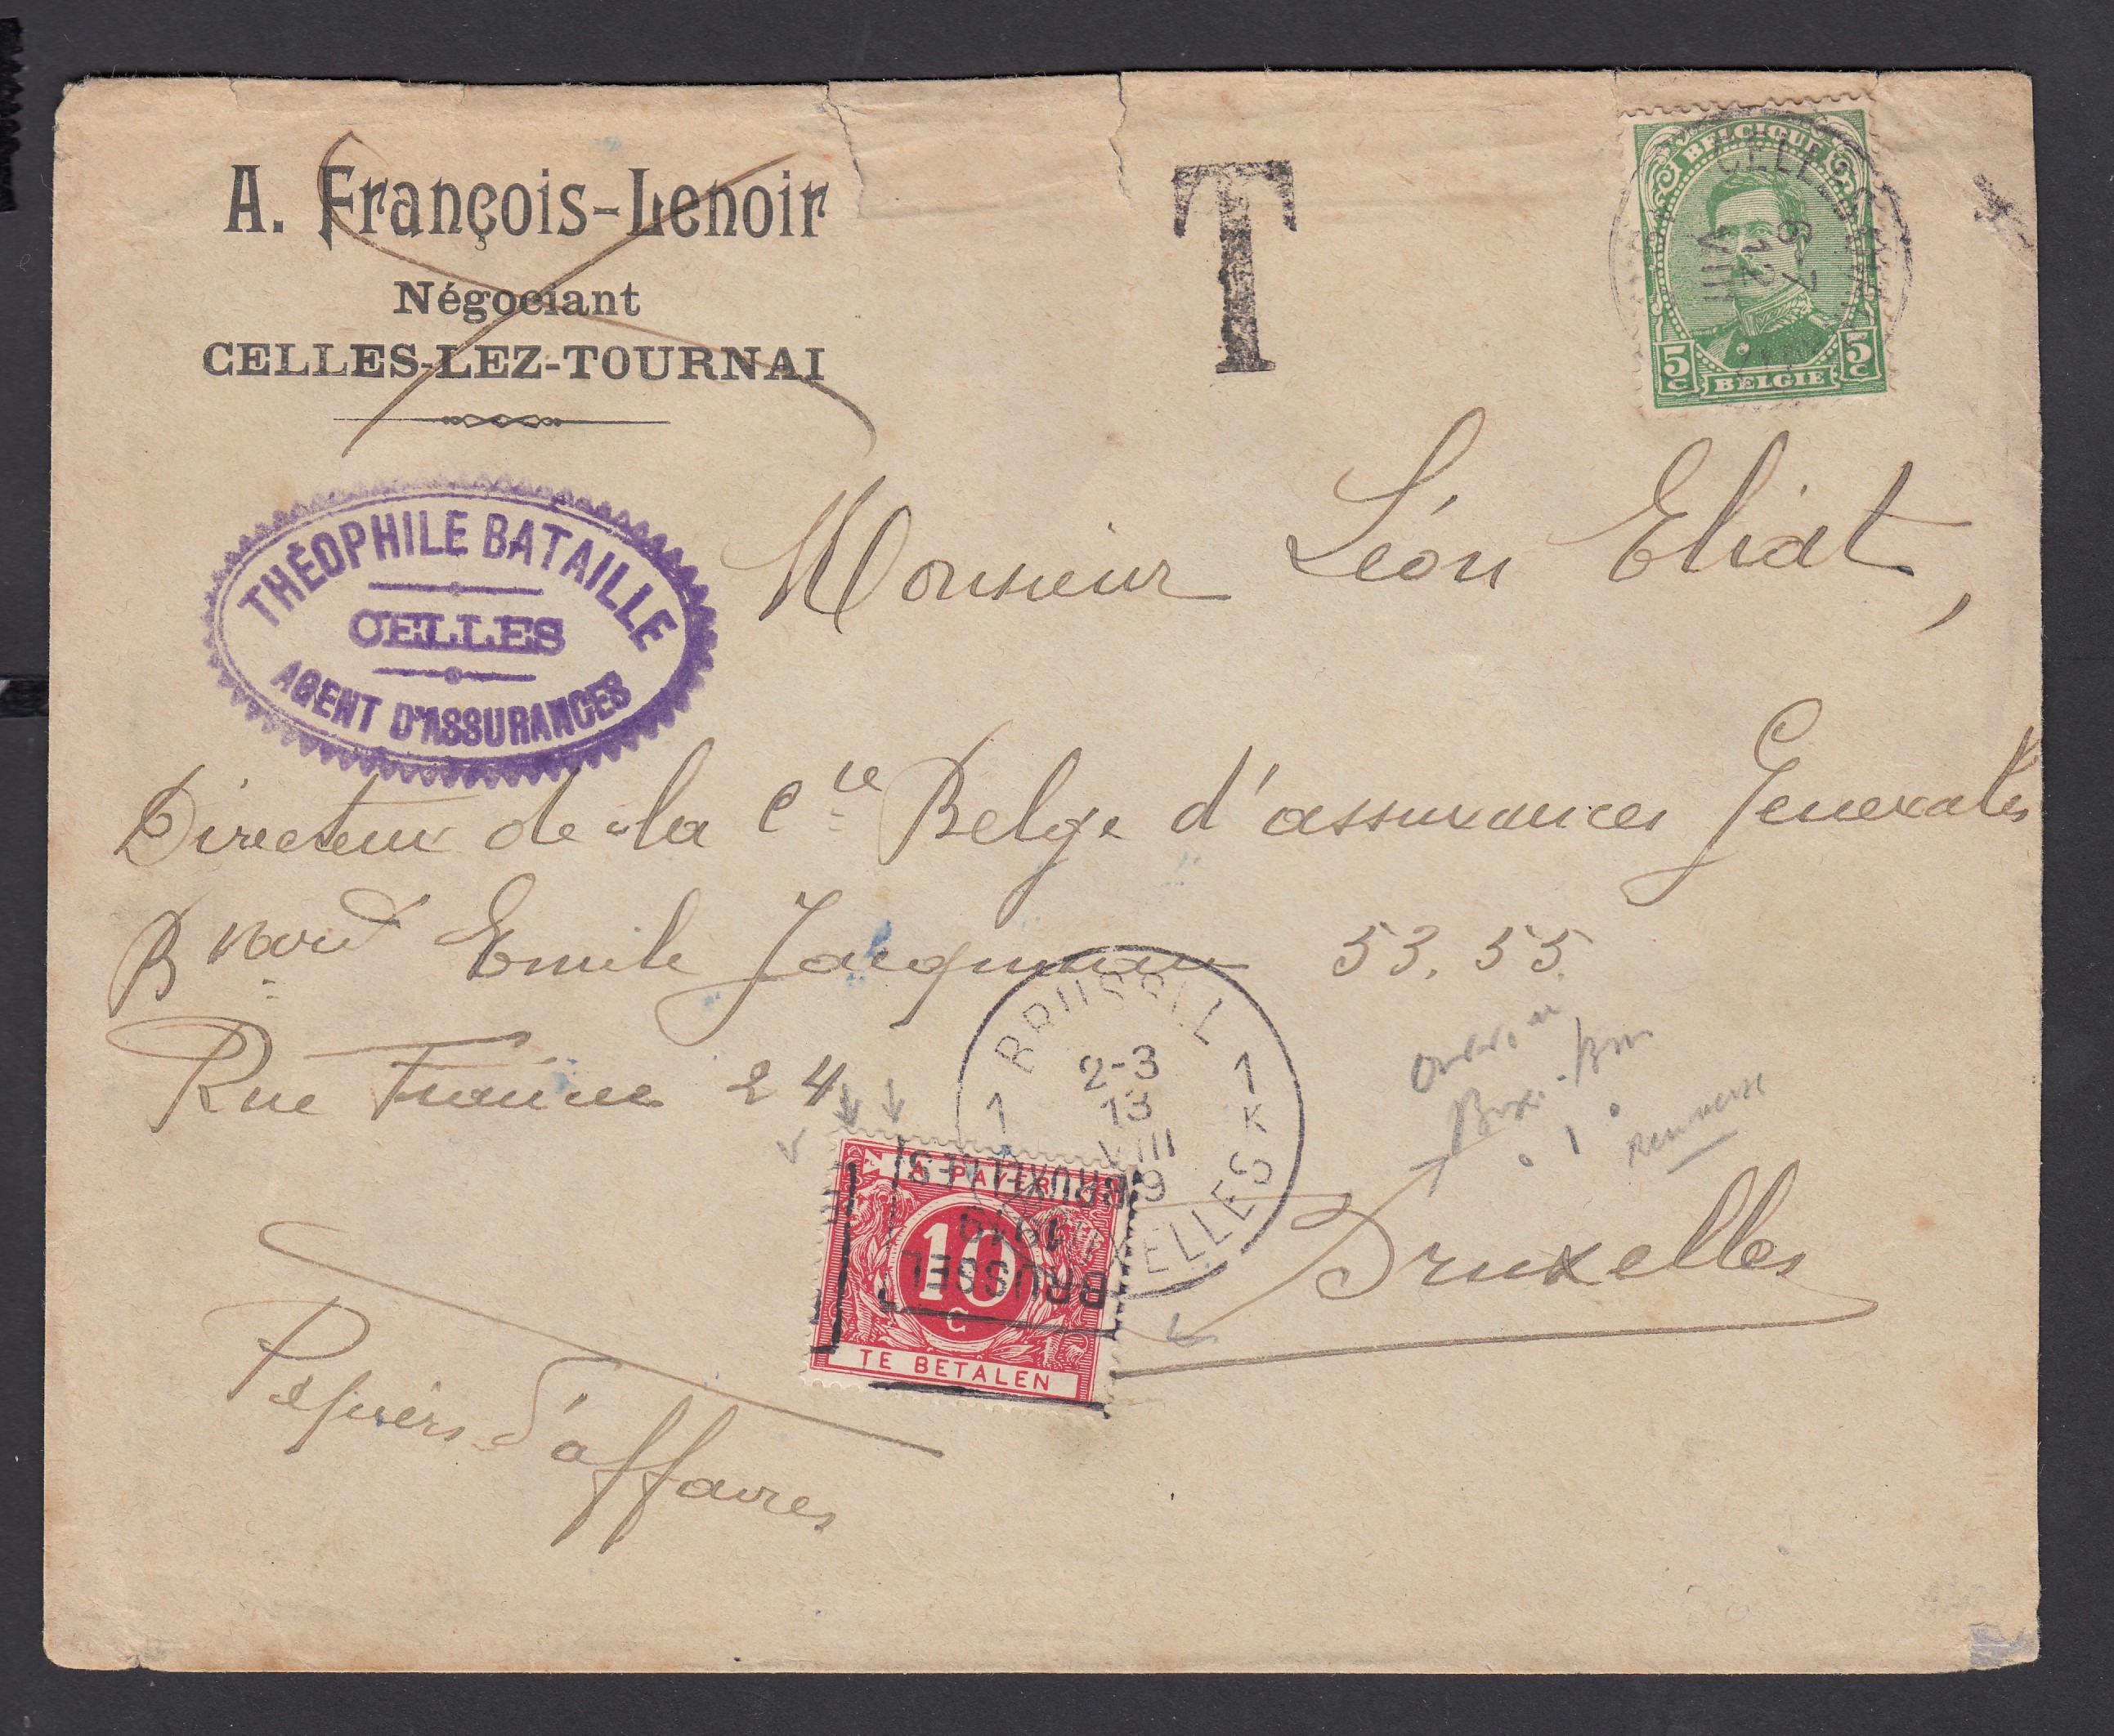 A. François-Lenoir
Négociant
CELLES-LEZ-TOURNAI
T
BELGIQUE
5 C
5 C
BELGIE
CELLES
6-7
12
VIII
THÉOPHILE BATAILLE
CELLES
AGENT D'ASSURANCES
Monsieur Léon Eliat,
Directeur de la Cie Belge d'assurances Generales
Bvard Emile Jacqmain 53.55.
Rue 24
BRUSSEL
1 1
2-3
13
VIII
19
K
BRUXELLES
Bruxelles
renversé
A PAYER
10
C
TE BETALEN
BRUXELLES
1919
BRUSSEL
Papiers d'affaires